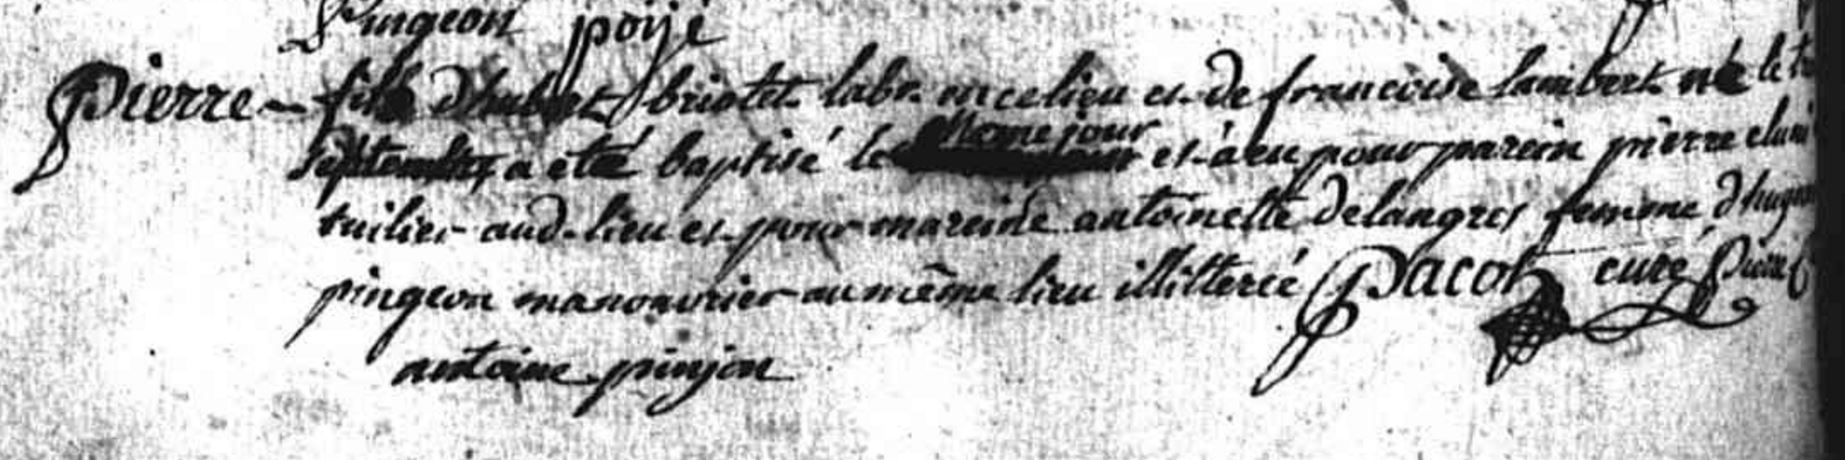 Pingeon poijé
Pierre fils d'hubert briotet labr. en ce lieu et de francoise lambert né le
septembre a eté baptisé le même jour et a eu pour parein pierre
tuilier aud. lieu et pour mareine antoinette delangres femme d'hugue
pingeon manouvrier au même lieu illitterée Pacot curé Pierre
antoine pinjon